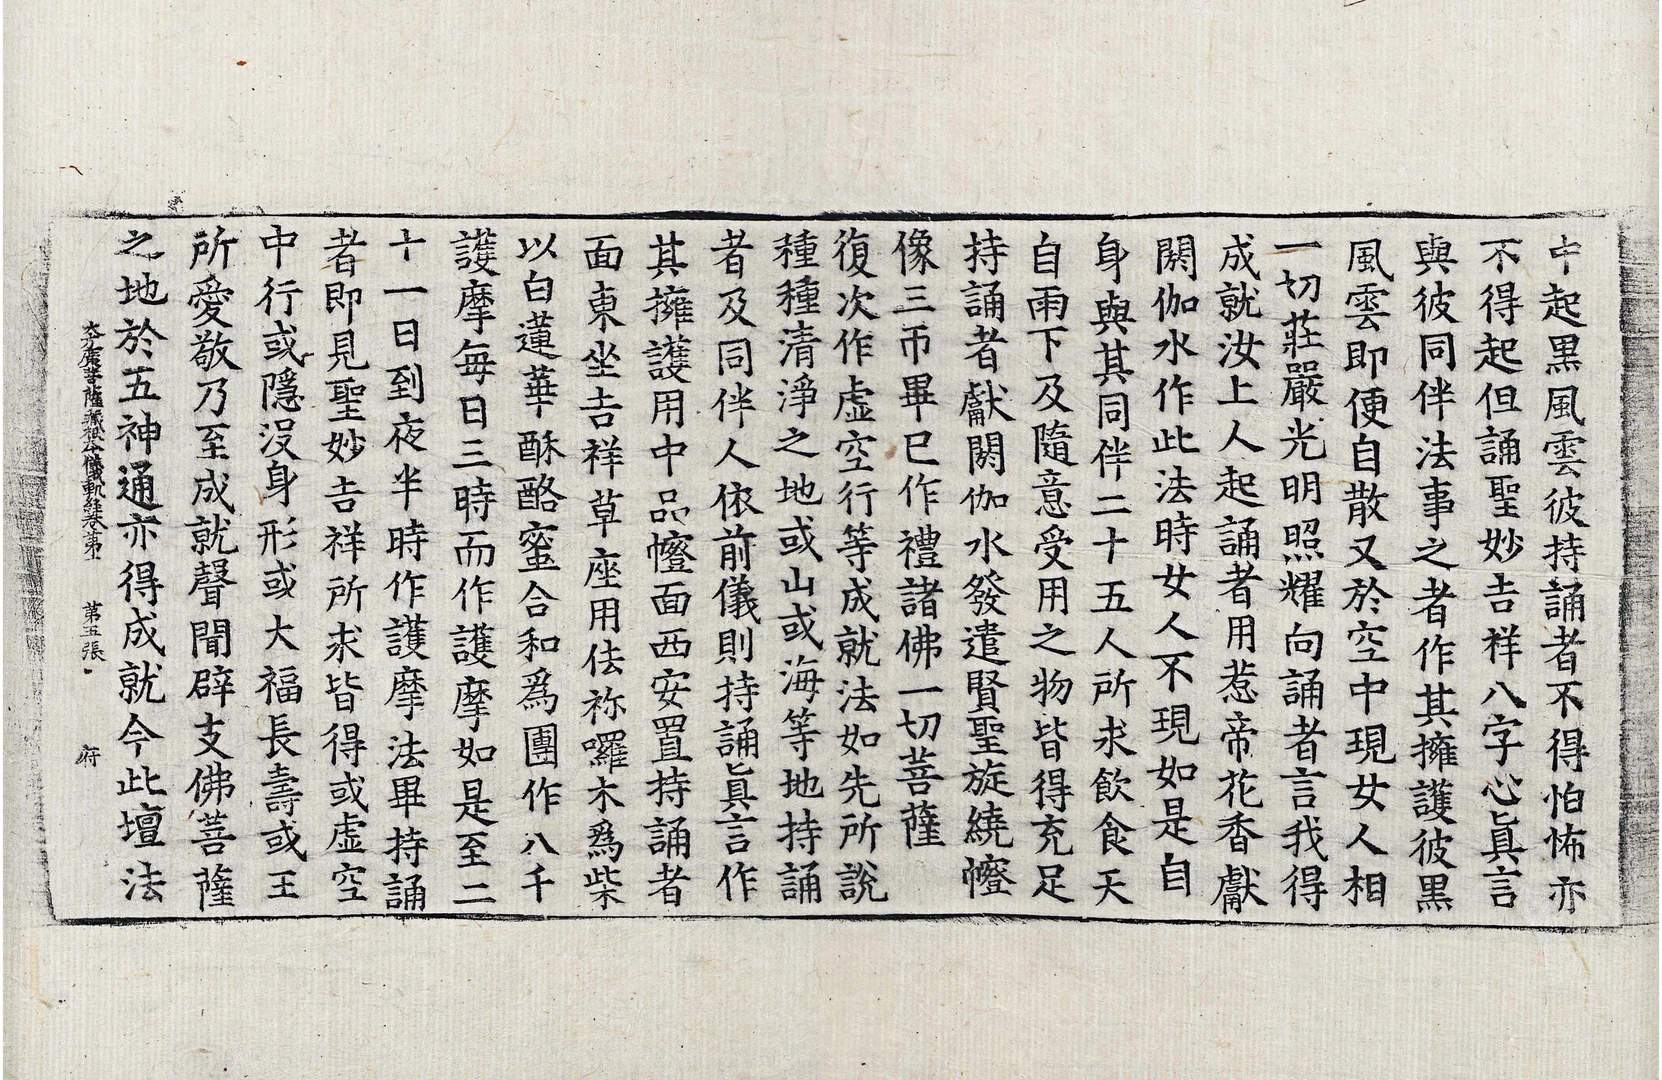 中起黑風雲彼持誦者不得怕怖亦
不得起但誦聖妙吉祥八字心眞言
與彼同伴法事之者作其擁護彼黑
風雲即便自散又於空中現女人相
一切莊嚴光明照耀向誦者言我得
成就汝上人起誦者用惹帝花香獻
閼伽水作此法時女人不現如是自
身與其同伴二十五人所求飲食天
自雨下及隨意受用之物皆得充足
持誦者獻閼伽水發遣賢聖旋繞㡧
像三帀畢已作禮諸佛一切菩薩
復次作虛空行等成就法如先所說
種種清淨之地或山或海等地持誦
者及同伴人依前儀則持誦眞言作
其擁護用中品㡧面西安置持誦者
面東坐吉祥草座用佉祢囉木爲柴
以白蓮華酥酪蜜合和爲團作八千
護摩每日三時而作護摩如是至二
十一日到夜半時作護摩法畢持誦
者即見聖妙吉祥所求皆得或虛空
中行或隱沒身形或大福長壽或王
所愛敬乃至成就聲聞辟支佛菩薩
之地於五神通亦得成就今此壇法
大方廣菩薩藏根本儀軌經卷第十一 第五張 府